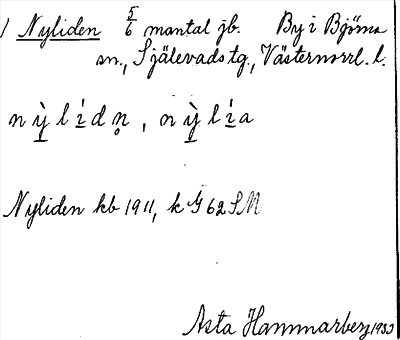 1 Nyliden 5/6 mantal jb. By i Björna
sn., Själevads tg., Västernorrl. l.
nỳ̲lí̲dn̥, nỳ̲lí̲a
Nyliden kb 1911, k G 62 SM
Asta Hammarberg 1933